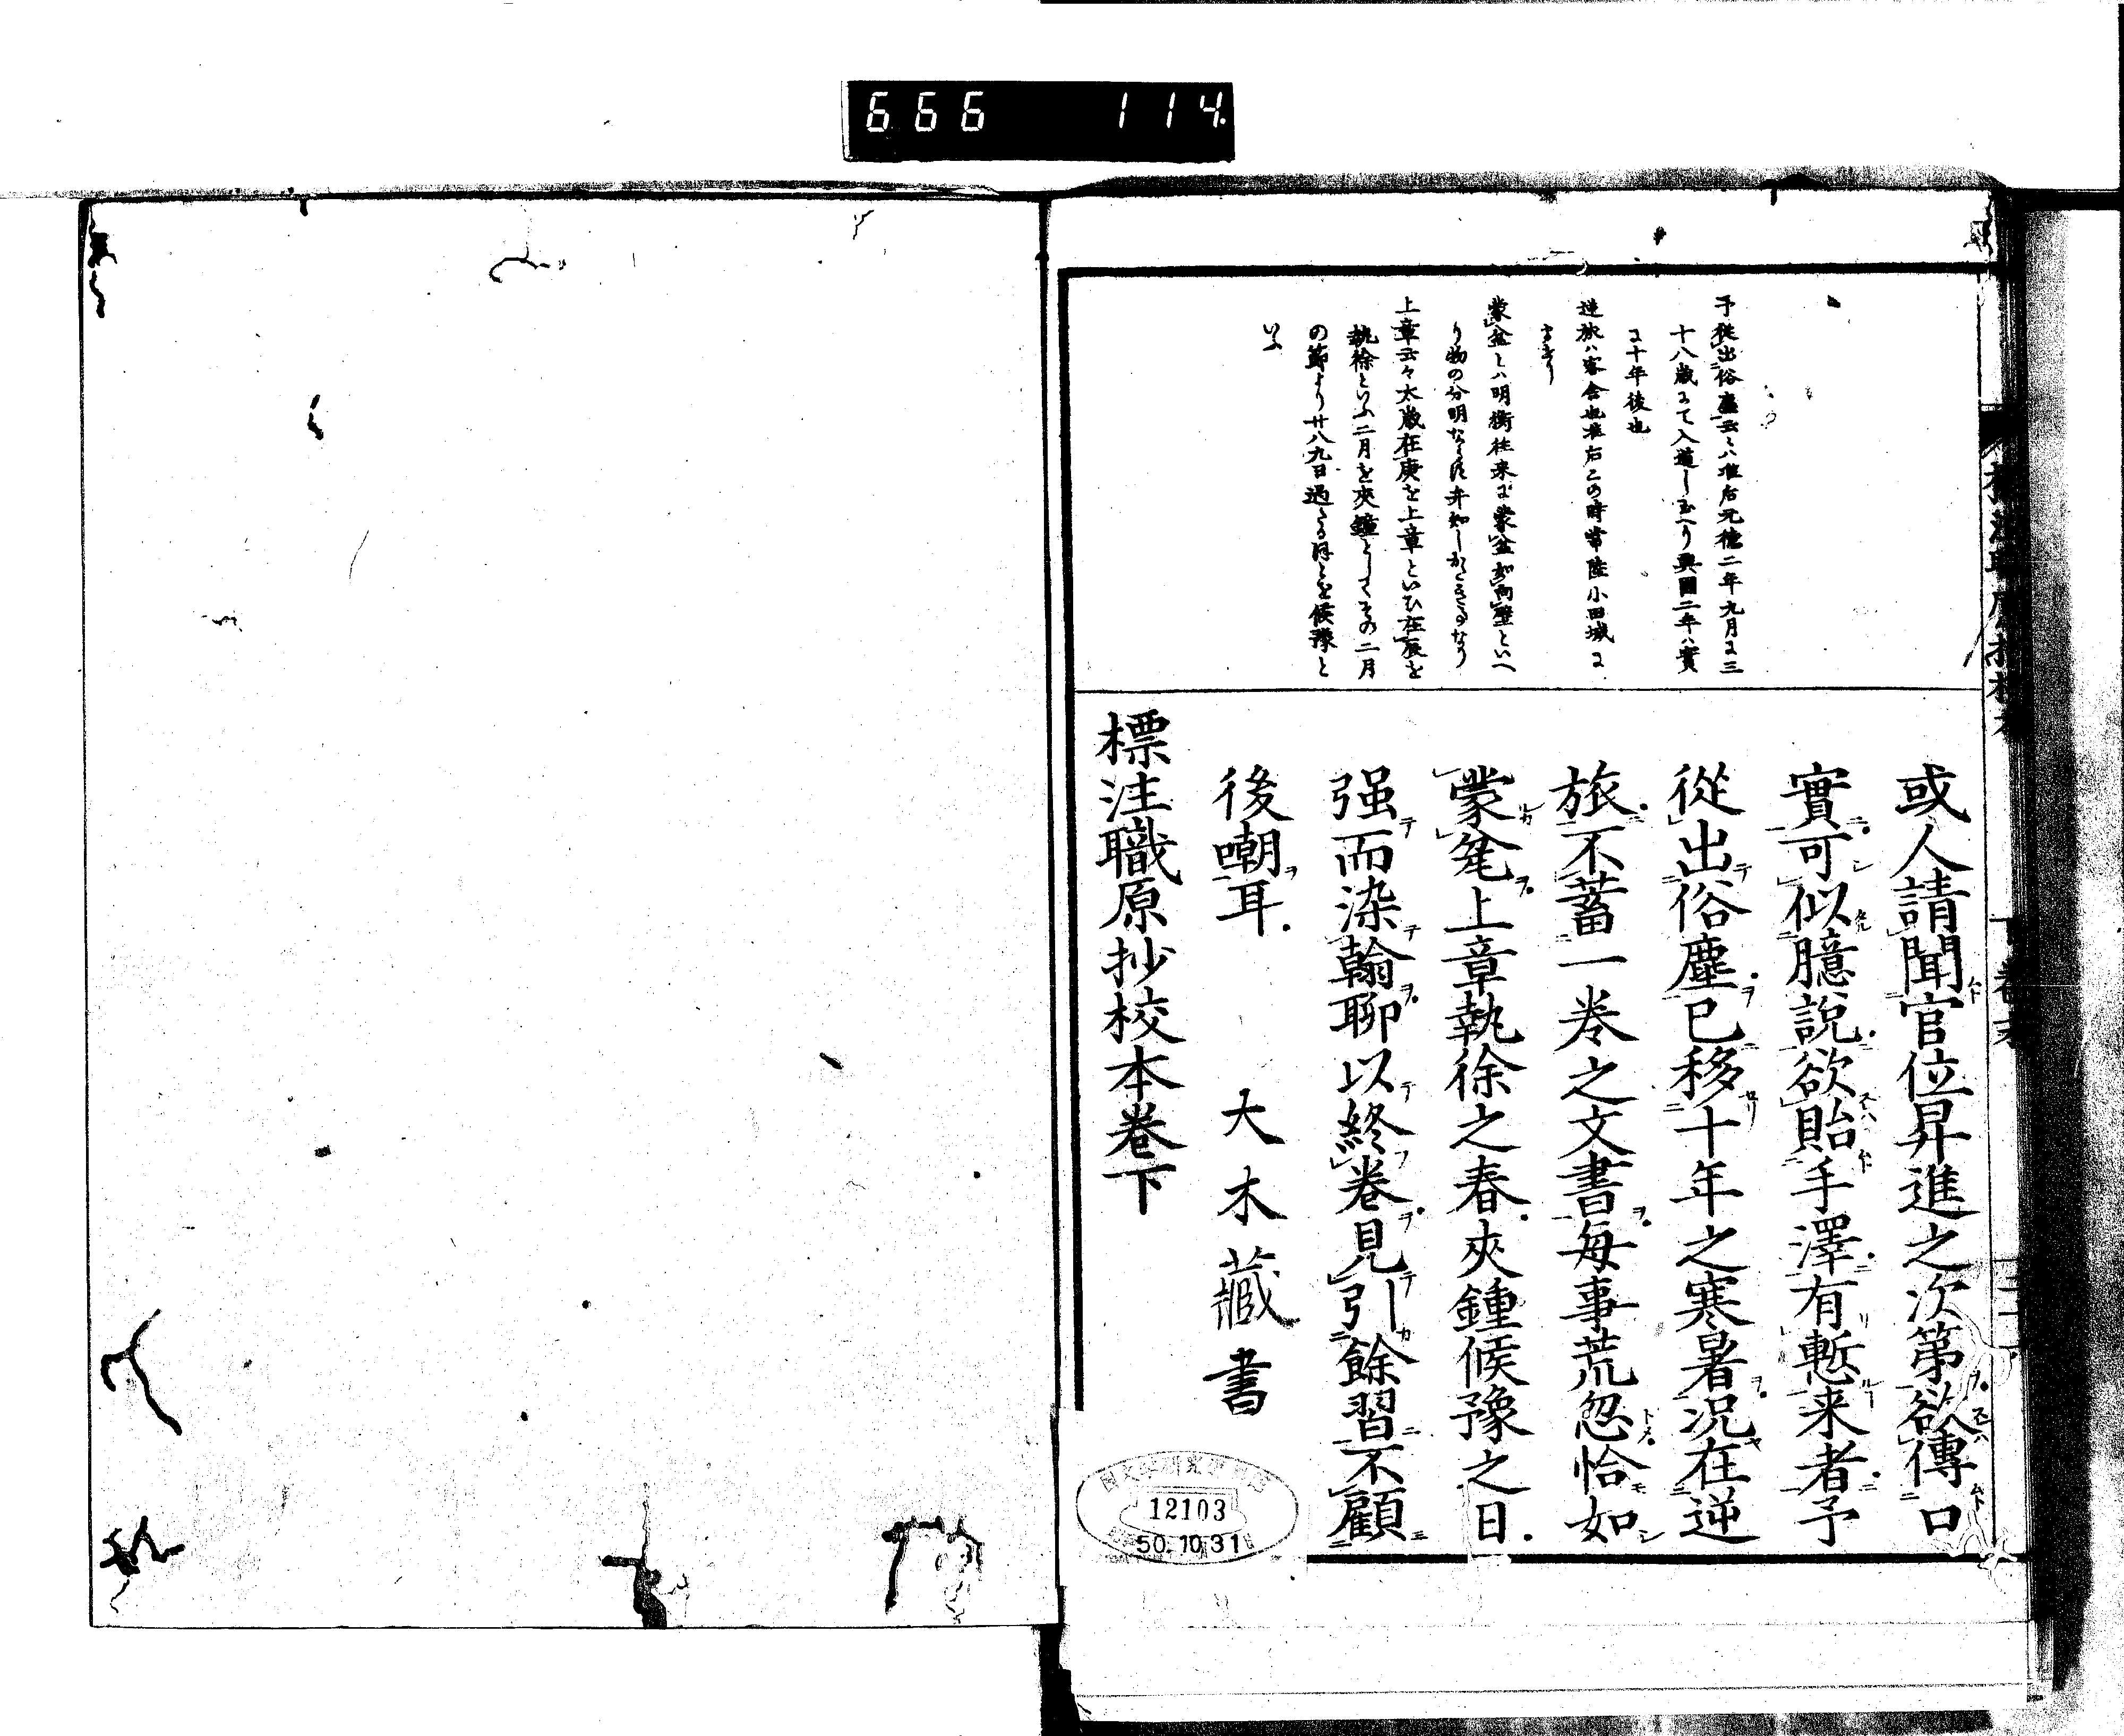 666 114
予從出俗塵云々ハ准后元德二年九月に三
十八歳にて入道し玉へり興國二年ハ實
に十年後也
逆旅ハ客舎也准后この時常陸小田城に
ませり
蒙盆とハ明衡往来に蒙盆如向壁といへ
り物の分明ならす弁知しかたきなり
上章云々太歳在庚を上章といひ在辰を
執徐といふ二月を夾鐘としてその二月
の節より廿八九日過たるほとを候豫と
いふ
或人請聞官位昇進之次第欲傳口
實可似臆說欲貽手澤有慙来者予
從出俗塵已移十年之寒暑况在逆
旅不蓄一卷之文書每事荒忽恰如
蒙瓫上章執徐之春夾鍾候豫之日
强而染翰聊以終卷見引餘習不顧
後嘲耳
大木藏書
標注職原抄校本卷下
12103
50.10.31